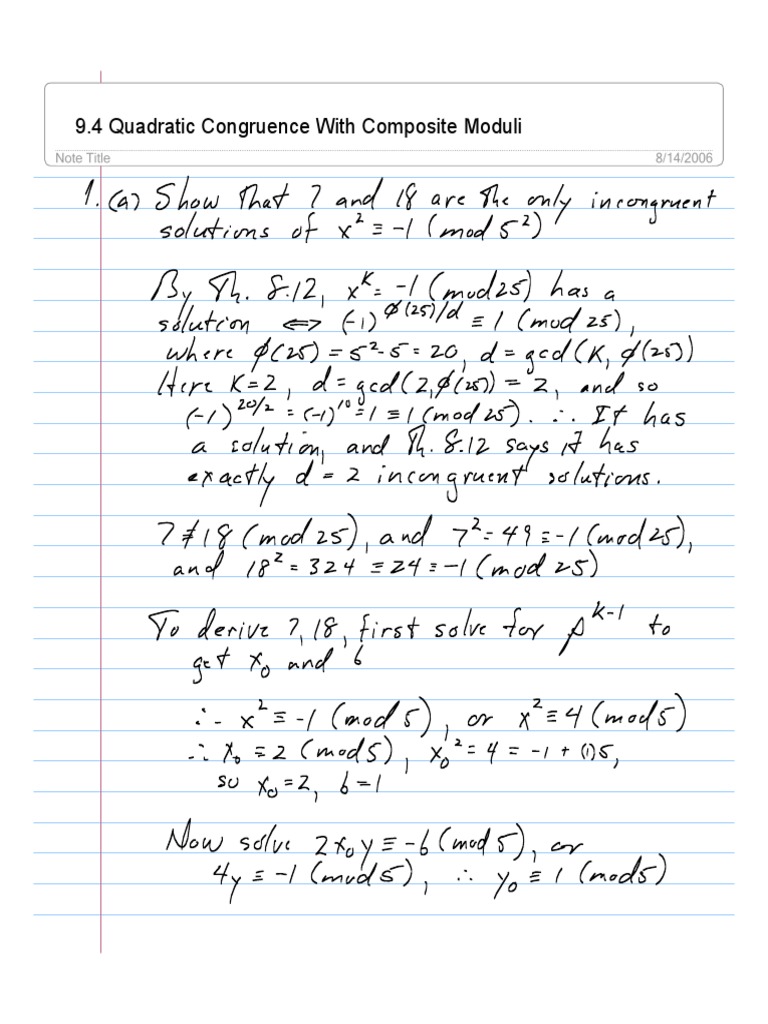 9.4 Quadratic Congruence With Composite Moduli
Note Title 8/14/2006
1. (a) Show that 7 and 18 are the only incongruent
solutions of x² ≡ -1 (mod 5²)
By Th. 8.12, x^K ≡ -1 (mod 25) has a
solution ⟺ (-1)^(φ(25)/d) ≡ 1 (mod 25),
where φ(25) = 5²-5 = 20, d = gcd(K, φ(25))
Here K=2, d = gcd(2, φ(25)) = 2, and so
(-1)^(20/2) = (-1)^10 = 1 ≡ 1 (mod 25). ∴ It has
a solution, and Th. 8.12 says it has
exactly d = 2 incongruent solutions.
7 ≢ 18 (mod 25), and 7² = 49 ≡ -1 (mod 25),
and 18² = 324 ≡ 24 ≡ -1 (mod 25)
To derive 7, 18, first solve for p^(K-1) to
get x₀ and b
∴ x² ≡ -1 (mod 5), or x² ≡ 4 (mod 5)
∴ x₀ ≡ 2 (mod 5), x₀² = 4 = -1 + (1)5,
so x₀ = 2, b = 1
Now solve 2x₀y ≡ -b (mod 5), or
4y ≡ -1 (mod 5), ∴ y₀ ≡ 1 (mod 5)